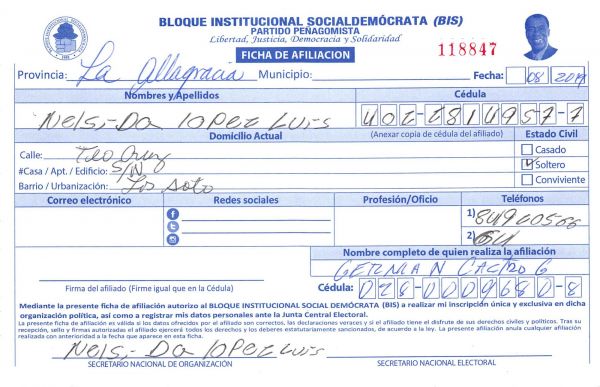 BLOQUE INSTITUCIONAL SOCIALDEMÓCRATA (BIS)
PARTIDO PEÑAGOMISTA
Libertad, Justicia, Democracia y Solidaridad
FICHA DE AFILIACION
118847
Provincia: La Altagracia Municipio: Fecha: 08 2019
Nombres y Apellidos Cédula
Nelsi-Da lopez Luis 402-2814957-7
Domicilio Actual (Anexar copia de cédula del afiliado) Estado Civil
Calle: Teo Cruz
#Casa / Apt. / Edificio: S/N
Barrio / Urbanización: Los Soto
Casado
Soltero
Conviviente
Correo electrónico Redes sociales Profesión/Oficio Teléfonos
1)
2)
Nombre completo de quien realiza la afiliación
GERMAN CASTRO G
Firma del afiliado (Firme igual que en la Cédula) Cédula: 028-0009680-8
Mediante la presente ficha de afiliación autorizo al BLOQUE INSTITUCIONAL SOCIAL DEMÓCRATA (BIS) a realizar mi inscripción única y exclusiva en dicha
organización política, así como a registrar mis datos personales ante la Junta Central Electoral.
La presente ficha de afiliación es válida si los datos ofrecidos por el afiliado son correctos, las declaraciones veraces y si el afiliado tiene el disfrute de sus derechos civiles y políticos. Tras su
recepción, sello y firmas autorizadas el afiliado ejercerá todos los derechos y los deberes estatutariamente sancionados, de acuerdo a la ley. La presente afiliación anula cualquier afiliación
realizada con anterioridad a la fecha que aparece en esta ficha.
Nelsi-Da lopez Luis
SECRETARIO NACIONAL DE ORGANIZACIÓN SECRETARIO NACIONAL ELECTORAL